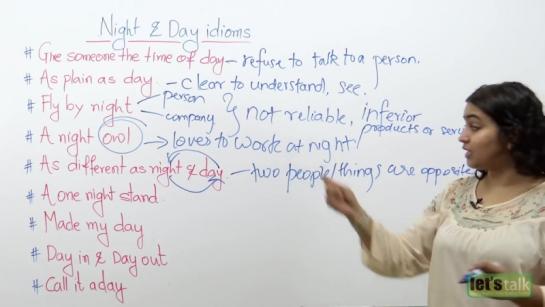 Night & Day idioms
# Give someone the time of day - refuse to talk to a person.
# As plain as day - clear to understand, see.
# Fly by night person company } not reliable, inferior products or serv
# A night owl → loves to work at night
# As different as night & day - two people/things are opposite
# A one night stand
# Made my day
# Day in & Day out
# Call it a day
let's talk